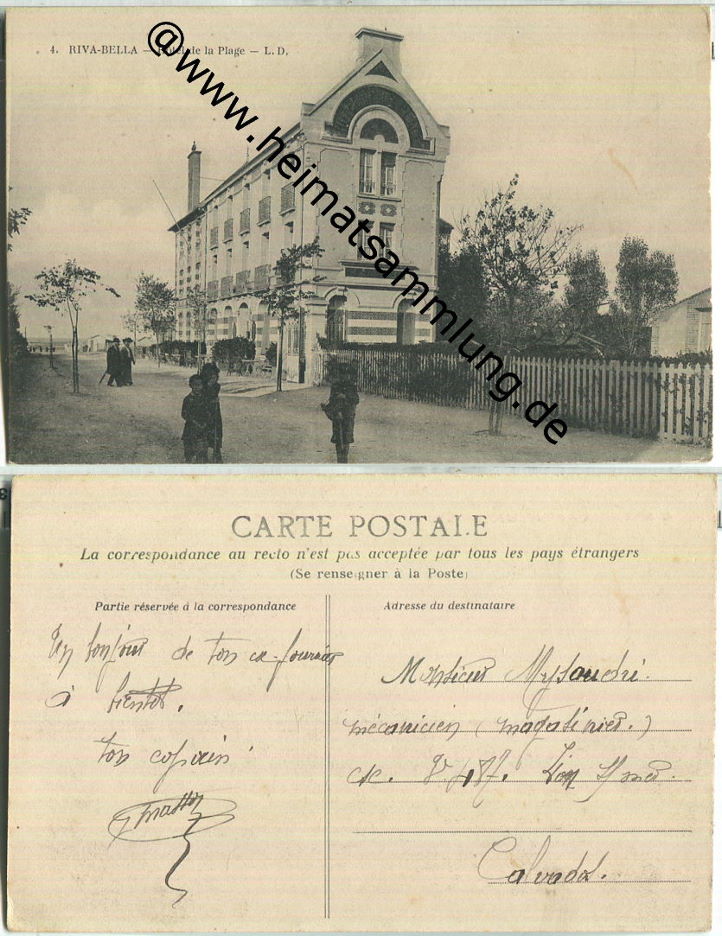 4. RIVA-BELLA — Hôtel de la Plage — L. D.
@www.heimatsammlung.de
CARTE POSTALE
La correspondance au recto n'est pas acceptée par tous les pays étrangers
(Se renseigner à la Poste)
Partie réservée à la correspondance
Adresse du destinataire
Un bonjour de ton ex-fourrier
à bientôt.
ton copain
Monsieur
mécanicien (magasinier.)
Calvados.